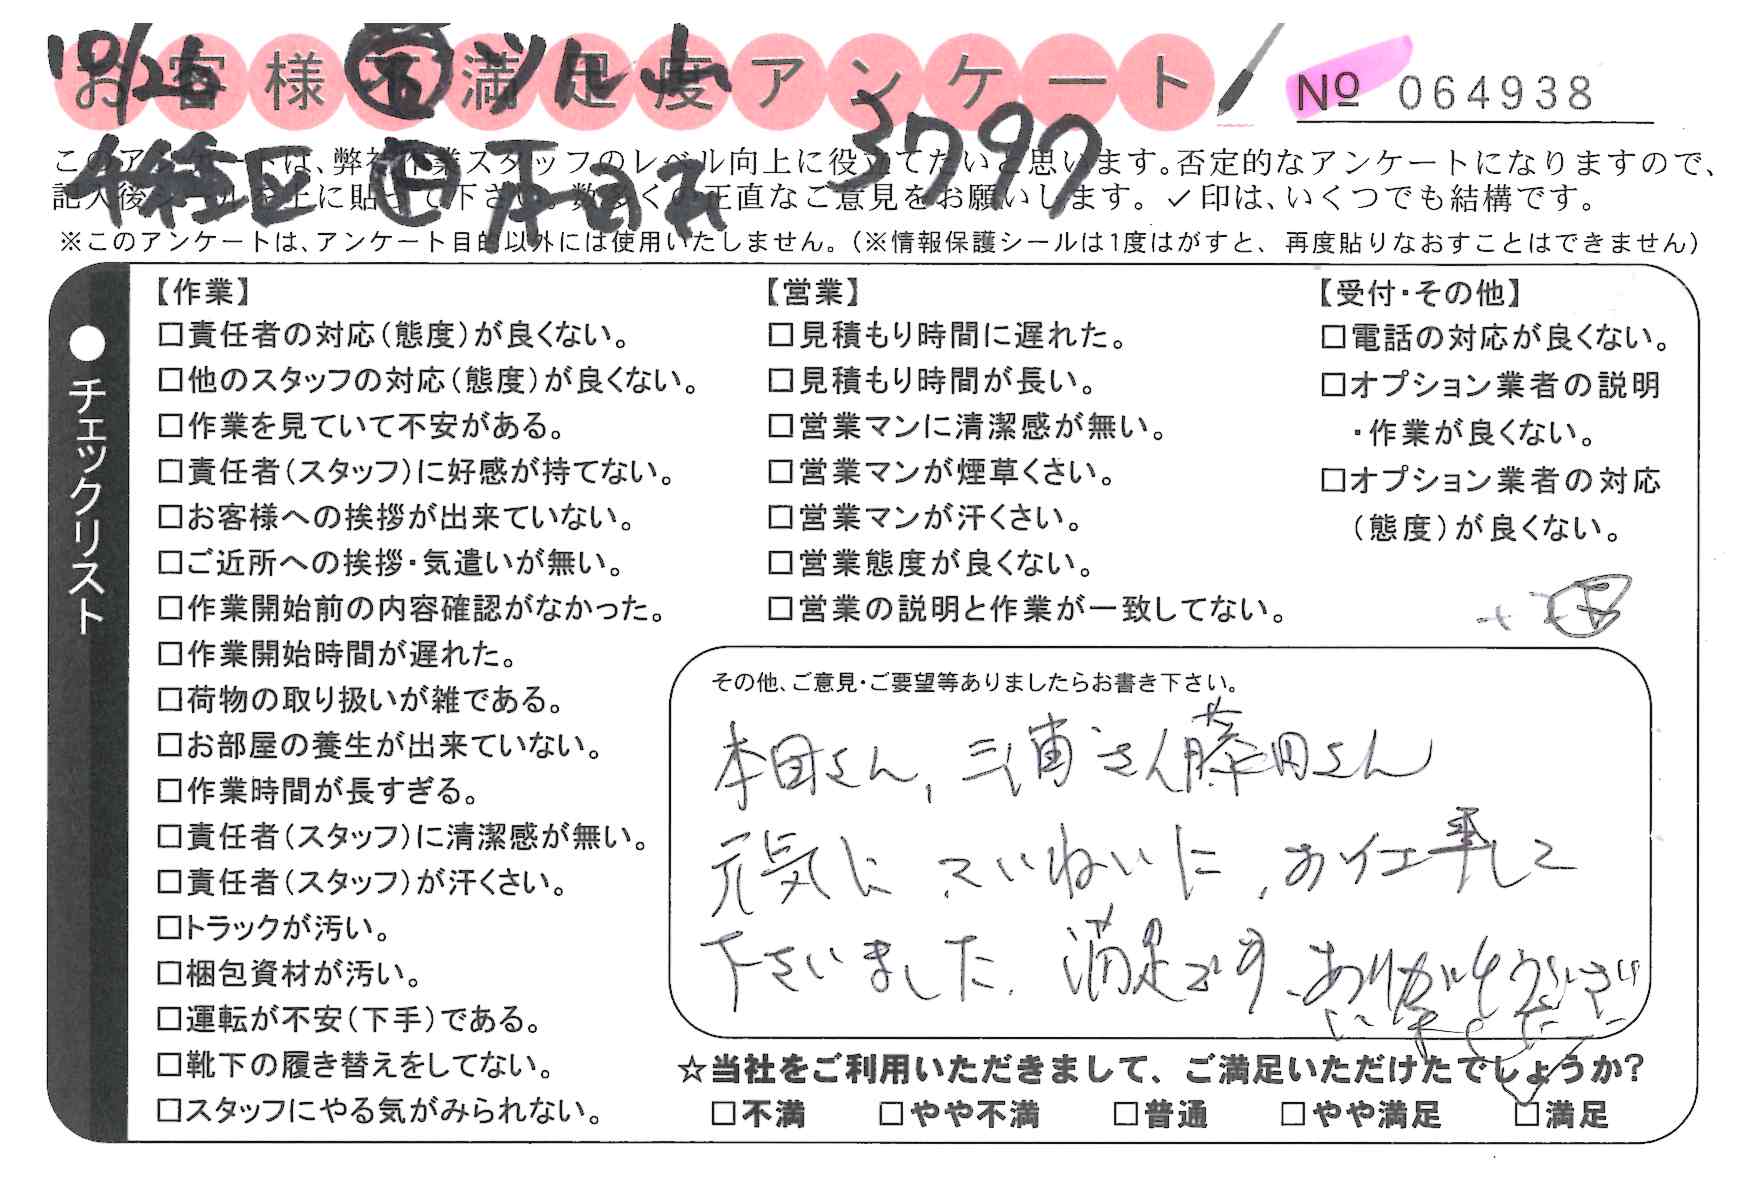 お客様不満足度アンケート
№ 064938
10/26
3797
このアンケートは、弊社作業スタッフのレベル向上に役立てたいと思います。否定的なアンケートになりますので、
記入後シールを上に貼って下さい。数多くの正直なご意見をお願いします。✓印は、いくつでも結構です。
※このアンケートは、アンケート目的以外には使用いたしません。(※情報保護シールは1度はがすと、再度貼りなおすことはできません)
●チェックリスト
【作業】
□責任者の対応(態度)が良くない。
□他のスタッフの対応(態度)が良くない。
□作業を見ていて不安がある。
□責任者(スタッフ)に好感が持てない。
□お客様への挨拶が出来ていない。
□ご近所への挨拶・気遣いが無い。
□作業開始前の内容確認がなかった。
□作業開始時間が遅れた。
□荷物の取り扱いが雑である。
□お部屋の養生が出来ていない。
□作業時間が長すぎる。
□責任者(スタッフ)に清潔感が無い。
□責任者(スタッフ)が汗くさい。
□トラックが汚い。
□梱包資材が汚い。
□運転が不安(下手)である。
□靴下の履き替えをしてない。
□スタッフにやる気がみられない。
【営業】
□見積もり時間に遅れた。
□見積もり時間が長い。
□営業マンに清潔感が無い。
□営業マンが煙草くさい。
□営業マンが汗くさい。
□営業態度が良くない。
□営業の説明と作業が一致してない。
【受付・その他】
□電話の対応が良くない。
□オプション業者の説明
・作業が良くない。
□オプション業者の対応
(態度)が良くない。
その他、ご意見・ご要望等ありましたらお書き下さい。
本田さん、三浦さん藤田さん
元気に、ていねいに、お仕事して
下さいました。満足です。ありがとうございました
☆当社をご利用いただきまして、ご満足いただけたでしょうか?
□不満 □やや不満 □普通 □やや満足 □満足